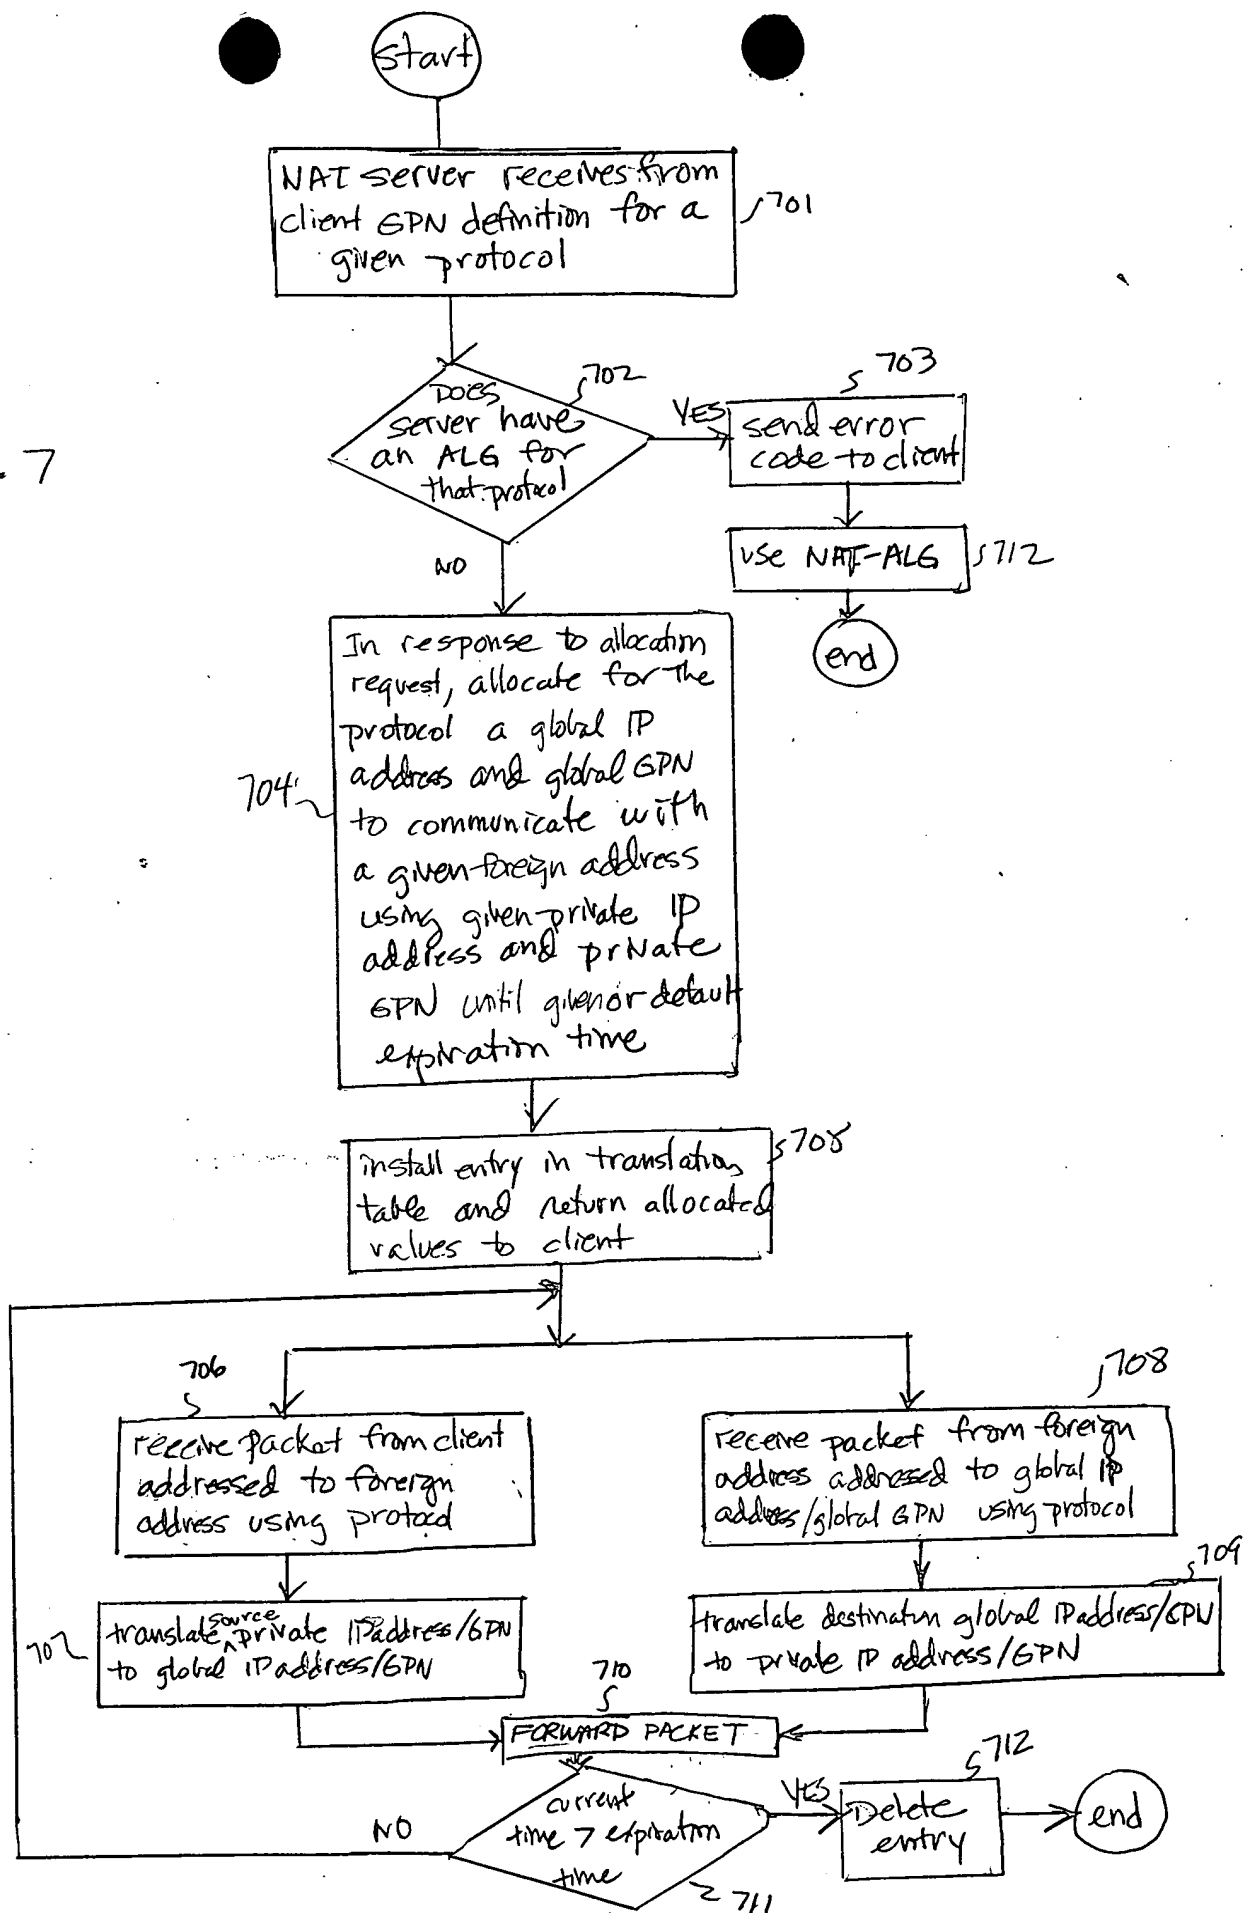 start
NAT server receives from
client GPN definition for a
given protocol
701
702
DOES
server have
an ALG for
that protocol
YES
703
send error
code to client
. 7
NO
use NAT-ALG
712
end
In response to allocation
request, allocate for the
protocol a global IP
address and global GPN
to communicate with
a given foreign address
using given private IP
address and private
GPN until given or default
expiration time
704
install entry in translation
table and return allocated
values to client
705
706
receive packet from client
addressed to foreign
address using protocol
708
receive packet from foreign
address addressed to global IP
address/global GPN using protocol
707
translate source private IP address/GPN
to global IP address/GPN
709
translate destination global IP address/GPN
to private IP address/GPN
710
FORWARD PACKET
NO
current
time > expiration
time
711
YES
712
Delete
entry
end